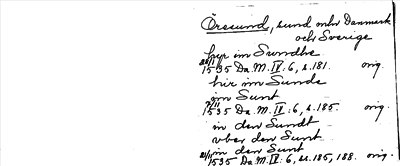 Öresund, sund mln Danmark
och Sverige
hyr im Sundhe
1535 Da. M. IV: 6, s. 181. orig.
hir im Sunde
im Sunt
1535 Da. M. IV: 6, s. 185. orig.
in den Sundt
vber den Sunt
in den Sunt
1535 Da. M. IV: 6, s. 185, 188. orig.